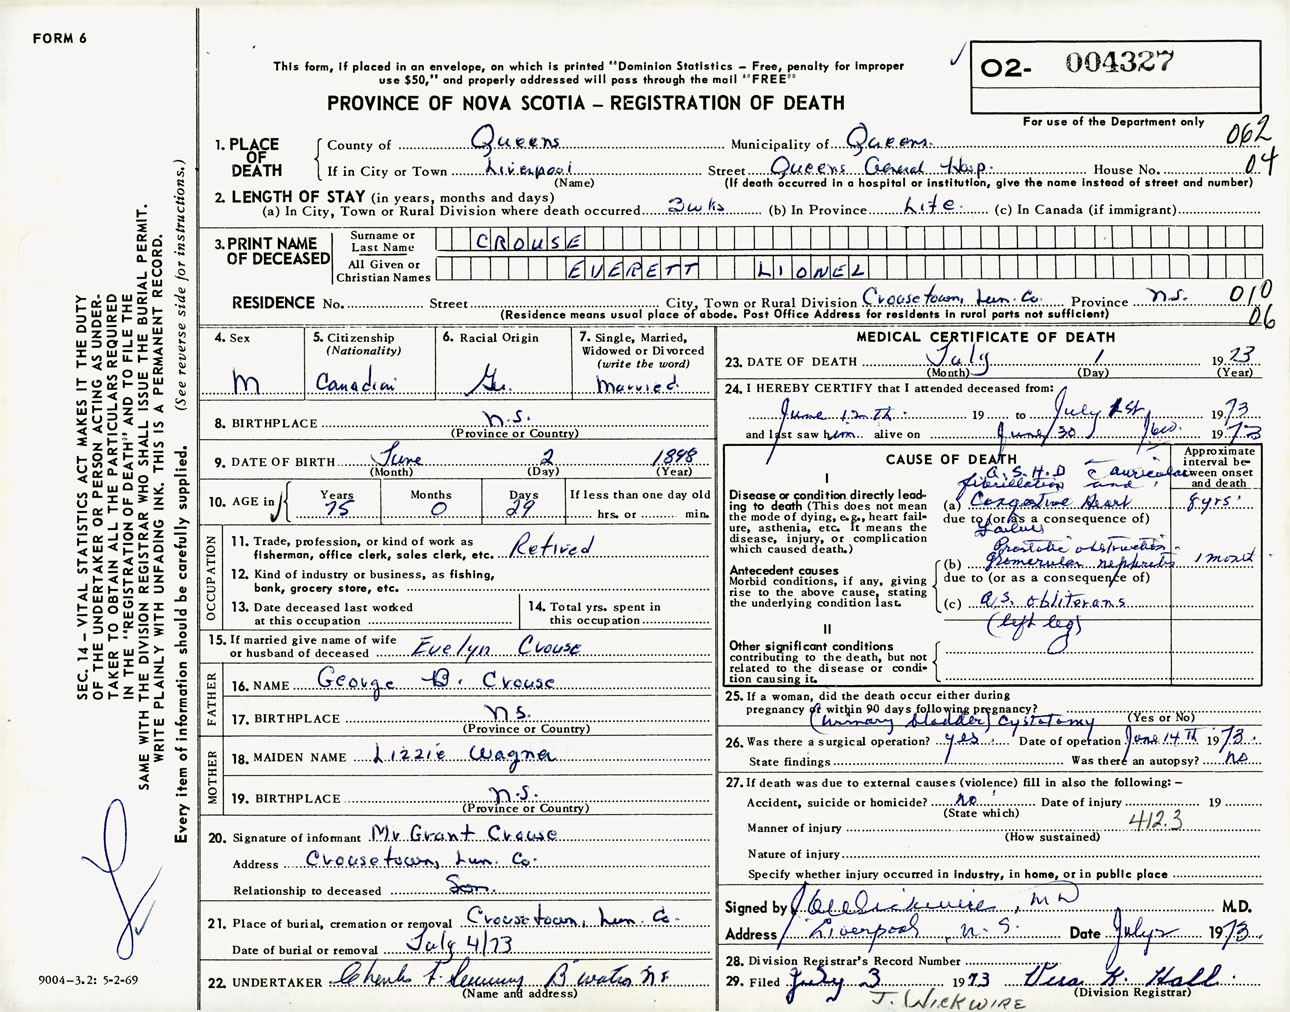 FORM 6
This form, if placed in an envelope, on which is printed "Dominion Statistics – Free, penalty for improper
use $50," and properly addressed will pass through the mail "FREE"
PROVINCE OF NOVA SCOTIA – REGISTRATION OF DEATH
02- 004327
For use of the Department only
062
04
1. PLACE OF DEATH
County of Queens Municipality of Queens.
If in City or Town Liverpool Street Queens General Hosp. House No.
(Name) (If death occurred in a hospital or institution, give the name instead of street and number)
2. LENGTH OF STAY (in years, months and days)
(a) In City, Town or Rural Division where death occurred 3 wks (b) In Province Life. (c) In Canada (if immigrant)
3. PRINT NAME OF DECEASED
Surname or Last Name CROUSE
All Given or Christian Names EVERETT LIONEL
RESIDENCE No. Street City, Town or Rural Division Crousetown, Lun. Co. Province N.S. 010
(Residence means usual place of abode. Post Office Address for residents in rural parts not sufficient) 06
4. Sex
M
5. Citizenship
(Nationality)
Canadian
6. Racial Origin
Ger.
7. Single, Married,
Widowed or Divorced
(write the word)
Married.
8. BIRTHPLACE N.S.
(Province or Country)
9. DATE OF BIRTH June 2 1898
(Month) (Day) (Year)
10. AGE in
Years 75
Months 0
Days 29
If less than one day old
hrs. or min.
OCCUPATION
11. Trade, profession, or kind of work as
fisherman, office clerk, sales clerk, etc. Retired
12. Kind of industry or business, as fishing,
bank, grocery store, etc.
13. Date deceased last worked
at this occupation
14. Total yrs. spent in
this occupation
15. If married give name of wife
or husband of deceased Evelyn Crouse
FATHER
16. NAME George B. Crouse
17. BIRTHPLACE N.S.
(Province or Country)
MOTHER
18. MAIDEN NAME Lizzie Wagner
19. BIRTHPLACE N.S.
(Province or Country)
20. Signature of informant Mr Grant Crouse
Address Crousetown, Lun. Co.
Relationship to deceased Son.
21. Place of burial, cremation or removal Crousetown, Lun. Co.
Date of burial or removal July 4/73
22. UNDERTAKER B'water NS
(Name and address)
MEDICAL CERTIFICATE OF DEATH
23. DATE OF DEATH July 1 1973
(Month) (Day) (Year)
24. I HEREBY CERTIFY that I attended deceased from:
June 12th. 19 to July 1st, 1973
and last saw him alive on June 30 1973
CAUSE OF DEATH
Approximate
interval be-
tween onset
and death
I
Disease or condition directly lead-
ing to death (This does not mean
the mode of dying, e.g., heart fail-
ure, asthenia, etc. It means the
disease, injury, or complication
which caused death.)
A.S.H.D c auricular
fibrillation and
(a) Congestive Heart 8 yrs.
due to (or as a consequence of)
failure
Antecedent causes
Morbid conditions, if any, giving
rise to the above cause, stating
the underlying condition last.
Prostatic obstruction
(b) Glomerular nephritis 1 month
due to (or as a consequence of)
(c) A.S. obliterans
(left leg)
II
Other significant conditions
contributing to the death, but not
related to the disease or condi-
tion causing it.
25. If a woman, did the death occur either during
pregnancy or within 90 days following pregnancy?
(Yes or No)
(Urinary bladder) Cystotomy
26. Was there a surgical operation? yes Date of operation June 14th 1973.
State findings Was there an autopsy? no
27. If death was due to external causes (violence) fill in also the following: –
Accident, suicide or homicide? no Date of injury 19
(State which)
Manner of injury 412.3
(How sustained)
Nature of injury
Specify whether injury occurred in industry, in home, or in public place
Signed by J C Wickwire, MD M.D.
Address Liverpool, N.S. Date July 2 1973.
28. Division Registrar's Record Number
29. Filed July 3 1973 Vera K. Hall.
(Division Registrar)
J. WICKWIRE
SEC. 14 – VITAL STATISTICS ACT MAKES IT THE DUTY
OF THE UNDERTAKER OR PERSON ACTING AS UNDER-
TAKER TO OBTAIN ALL THE PARTICULARS REQUIRED
IN THE "REGISTRATION OF DEATH" AND TO FILE THE
SAME WITH THE DIVISION REGISTRAR WHO SHALL ISSUE THE BURIAL PERMIT.
WRITE PLAINLY WITH UNFADING INK. THIS IS A PERMANENT RECORD.
Every item of information should be carefully supplied. (See reverse side for instructions.)
9004-3.2: 5-2-69